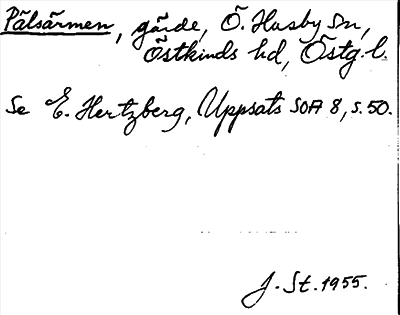 Pälsärmen, gärde, Ö. Husby sn,
Östkinds hd, Östg. l.
Se E. Hertzberg, Uppsats SOA 8, s. 50.
J. St. 1955.